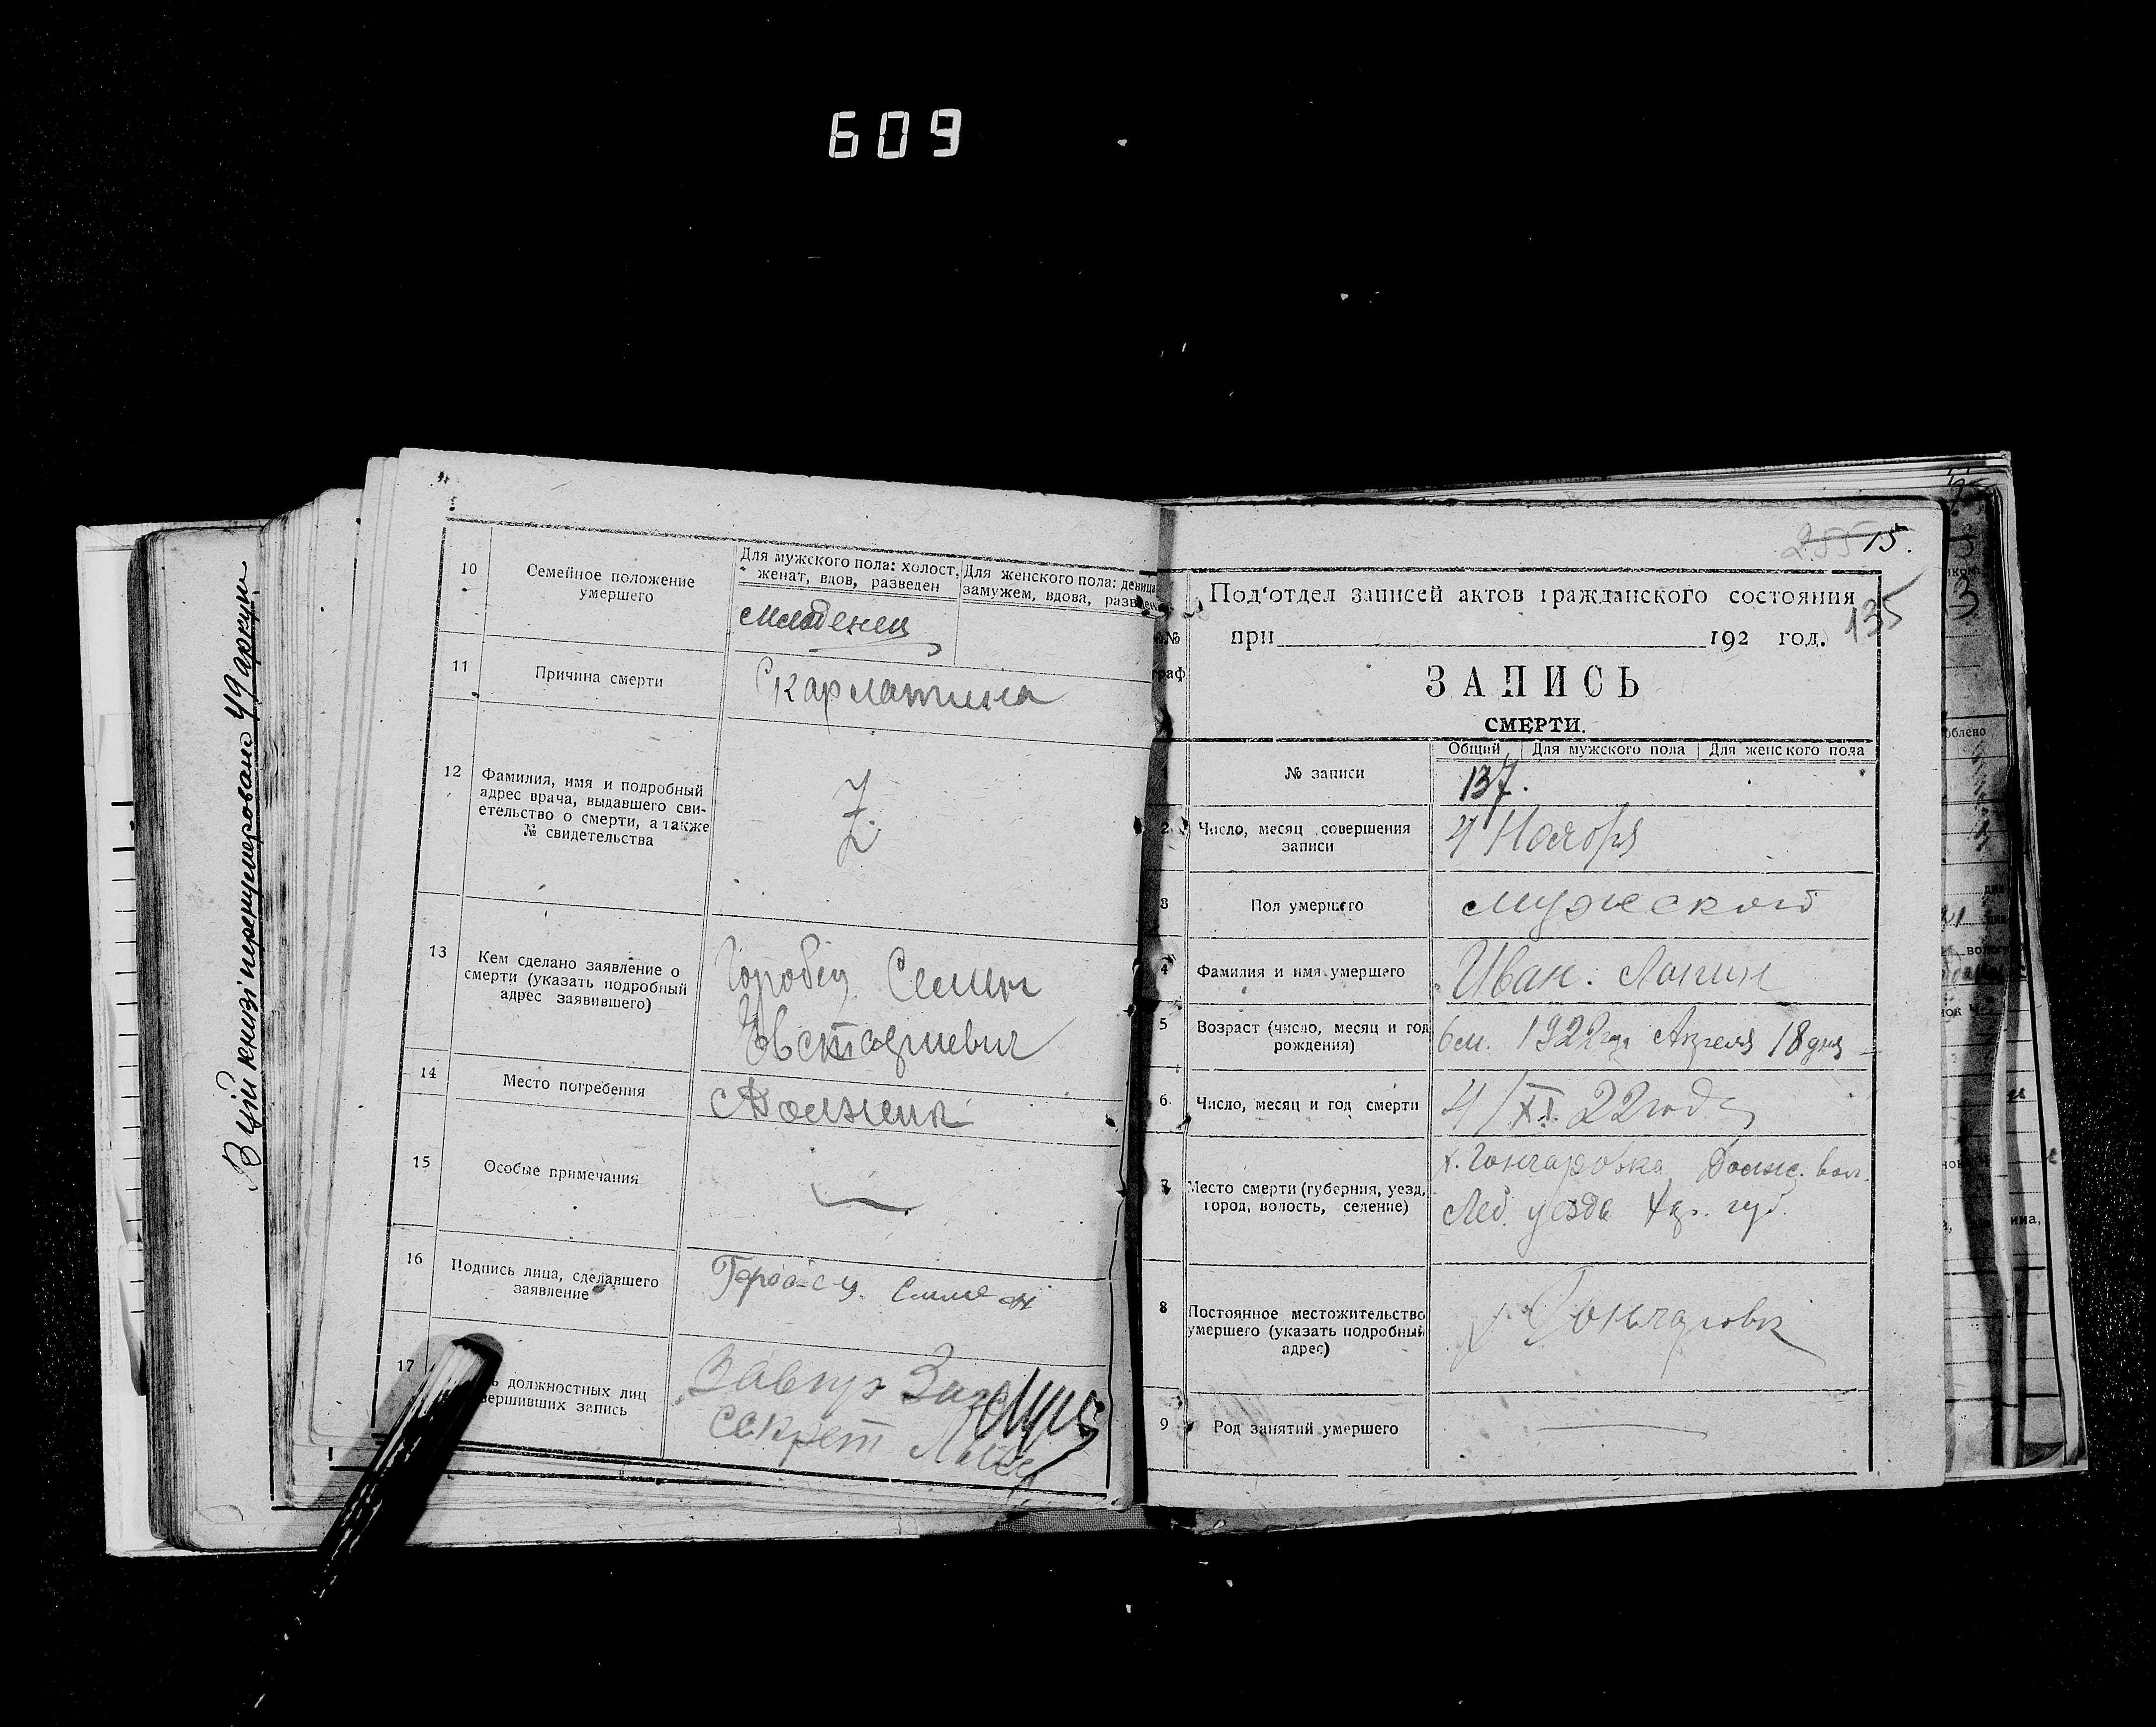 609
В цій книзі пренумеровано 49 аркуш.
10
Семейное положение
умершего
Для мужского пола: холост,
женат, вдов, разведен
Для женского пола: девица
замужем, вдова, разведен
младенец
11
Причина смерти
Скарлатина
12
Фамилия, имя и подробный
адрес врача, выдавшего сви-
етельство о смерти, а также
№ свидетельства
Z
13
Кем сделано заявление о
смерти (указать подробный
адрес заявившего)
Горобец Семен
14
Место погребения
15
Особые примечания
16
Подпись лица, сделавшего
заявление
17
ь должностных лиц
вершивших запись
Секрет
255 15.
135
Под‘отдел записей актов гражданского состояния
при 192 год.
№
граф
ЗАПИСЬ
СМЕРТИ.
Общий Для мужского пола Для женского пола
№ записи
137.
2
Число, месяц совершения
записи
4 Ноября
3
Пол умершего
мужеской
4
Фамилия и имя умершего
Иван. Лапин
5
Возраст (число, месяц и год
рождения)
6 м. 1922 года Апреля 18 дня
6
Число, месяц и год смерти
4/XI 22 года
7
Место смерти (губерния, уезд,
город, волость, селение)
х. Гончаровка Должс. вол.
Леб. уезда Хар. губ.
8
Постоянное местожительство
умершего (указать подробный
адрес)
х. Гончаровк
9
Род занятий умершего